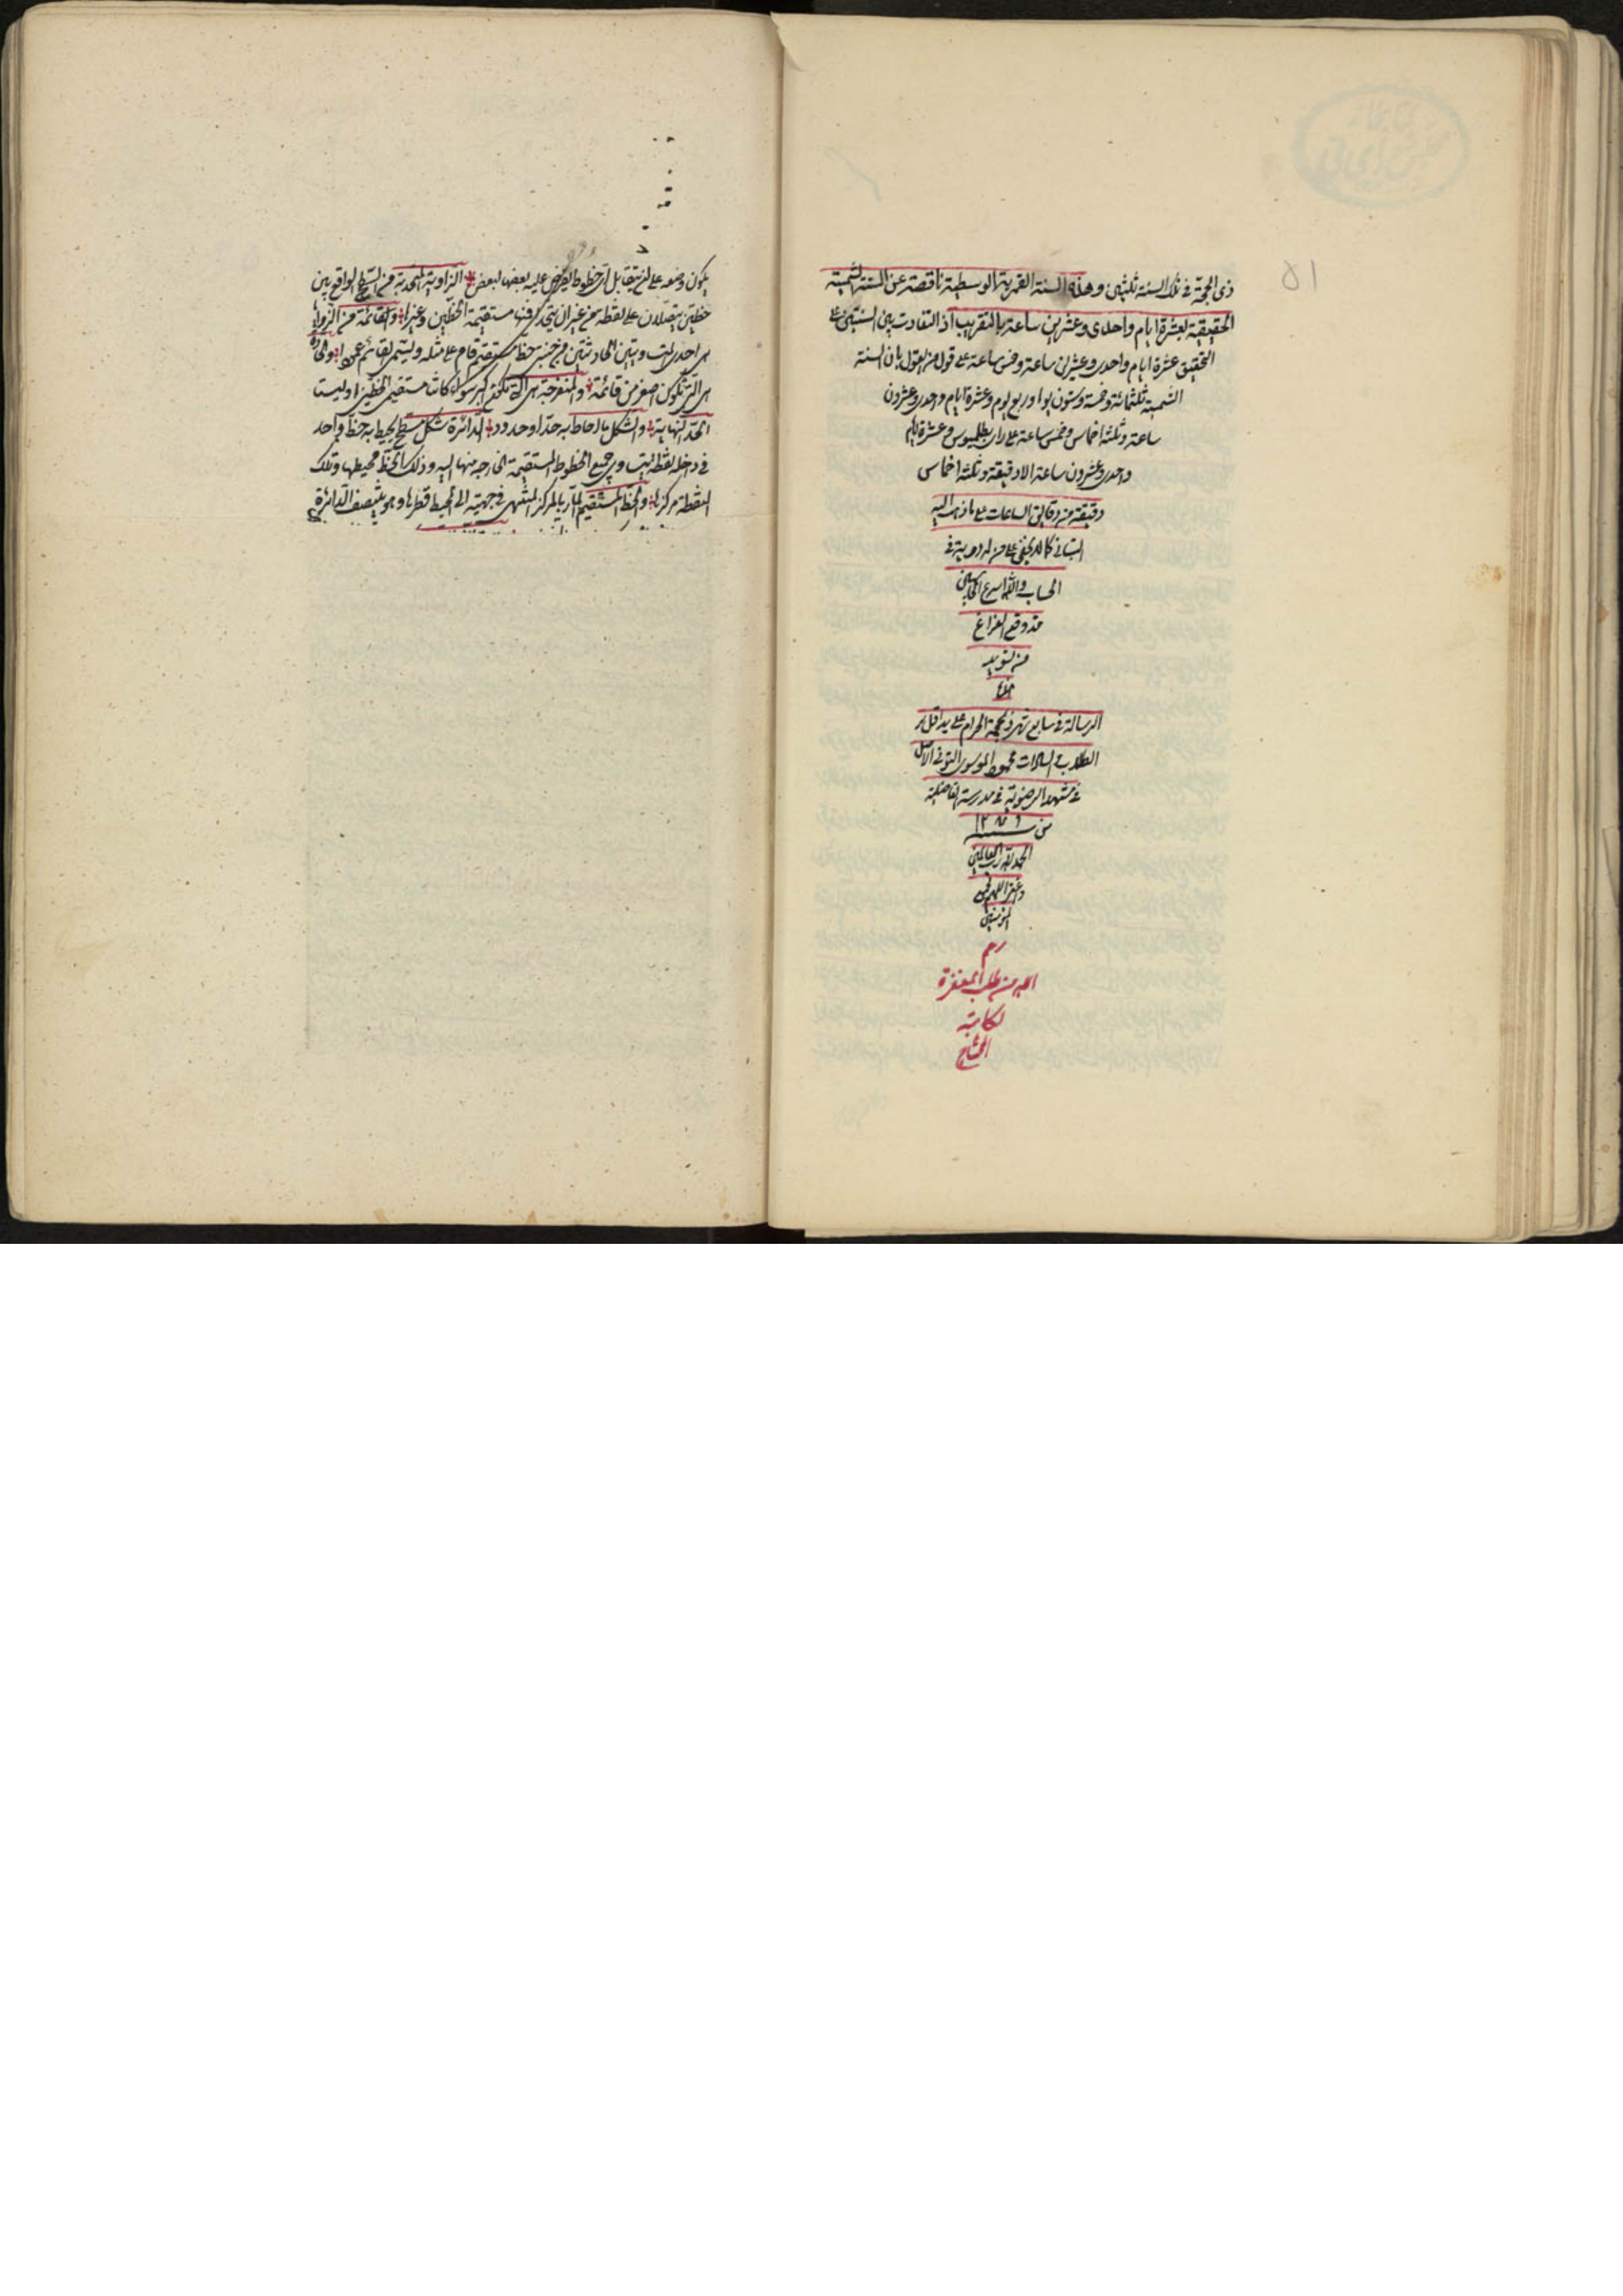 ذى الحجة فى تلك السنة ثلثين وهذه السنة القمرية الوسطية ناقصة عن السنة الشمسية
الحقيقية بعشرة ايام واحدى وعشرين ساعة بالتقريب اذ التفاوت بين السنتين على
التحقيق عشرة ايام واحدى وعشرين ساعة وخمس ساعة على قول من القول بان السنة
الشمسية ثلثمائة وخمسة وستون يوما وربع يوم وعشرة ايام واحدى وعشرون
ساعة وثلثة اخماس وخمس ساعة على راى بطلميوس وعشرة ايام
واحدى وعشرون ساعة الا دقيقة وثلثة اخماس
دقيقة من دقايق الساعات على ما ذهب اليه
البتانى كما لا يخفى على من له دربة فى
الحساب والله اسرع الحاسبين
قد وقع الفراغ
من تسويد
هذه
الرسالة فى سابع شهر ذيحجة الحرام على يد اقل
الطلاب والسادات محمود الموسوى الاصل
فى مشهد الرضوية فى مدرسة الفاضلية
من سنه ١٢٨٦
الحمد لله رب العالمين
واغفر اللهم لجميع
المؤمنين
رحم
الله من طلب المغفرة
لكاتبه
المحتاج
٥١
يكون وضعه على ان يتقابل اى خطوط تفرض عليه بعضها لبعض الزاوية المسطحة هى السطح الواقع بين
خطين يتصلان على نقطة من غير ان يتحدا فمنها مستقيمة الخطين وغيرها والقائمة من الزوايا
هى احدى المتساويتين الحادثتين من جنبى خط مستقيم قام على مثله ويسمى القائم عمودا والحادة
هى التى تكون اصغر من قائمة والمنفرجة هى التى تكون اكبر سواء كانتا مستقيمى الخطين او ليست
الحد النهاية والشكل ما احاط به حد او حدود الدائرة شكل مسطح يحيط به خط واحد
فى داخله نقطة يتساوى جميع الخطوط المستقيمة الخارجة منها اليه وذلك الخط محيطها وتلك
النقطة مركزها والخط المستقيم المار بالمركز المنتهى فى جهتيه الى المحيط قطرها وهو ينصف الدائرة